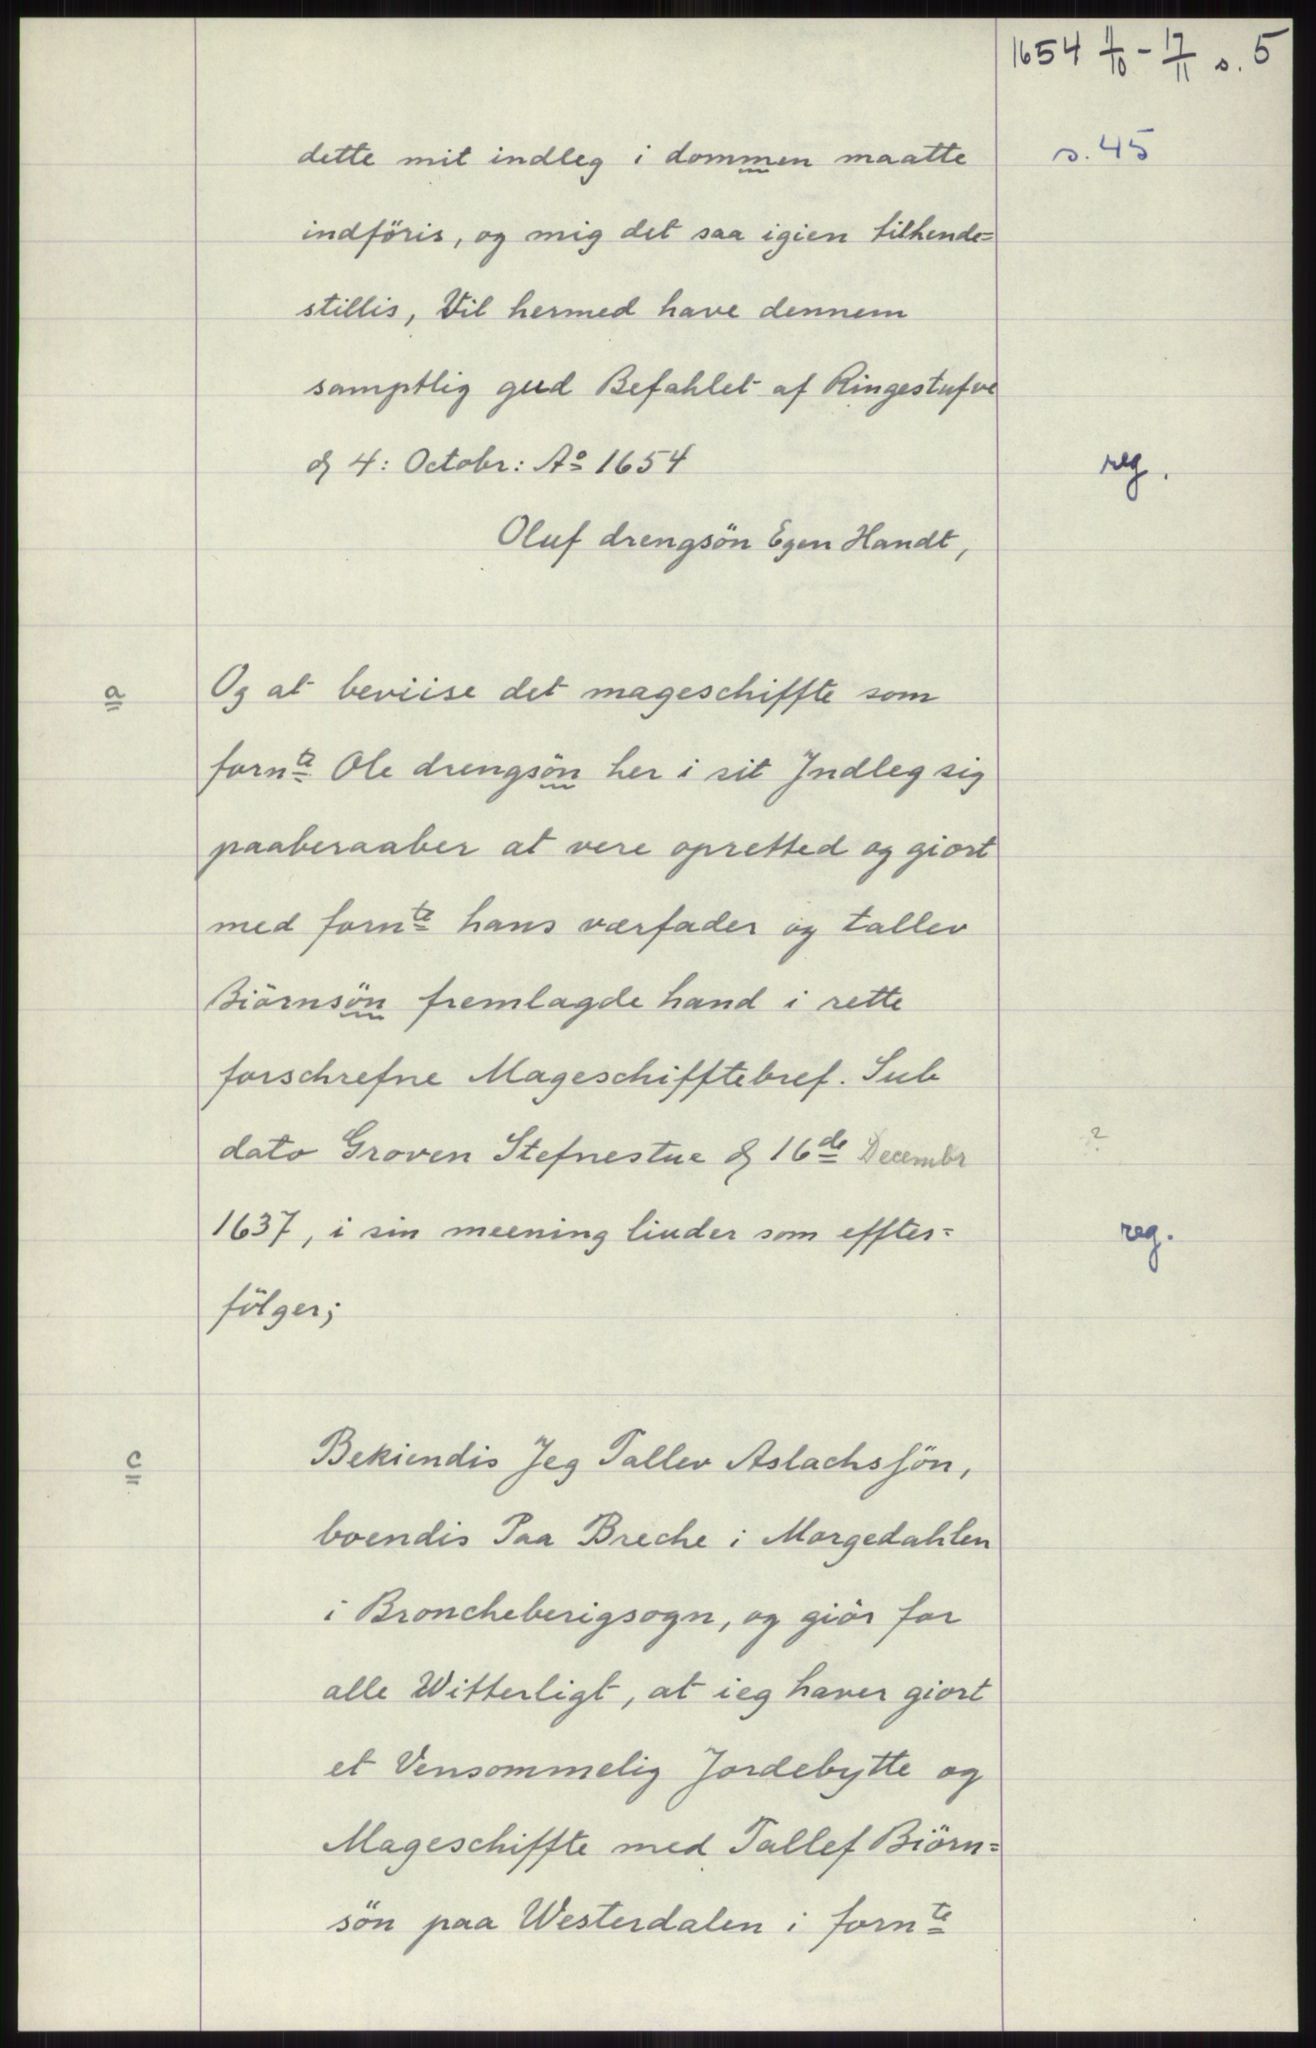 1654 11/10 - 17/11 s. 5
dette mit indleg i dommen maatte
s. 45
indföris, og mig det saa igien tilhende=
stillis, Vil hermed have dennem
samptlig gud Befahlet af Ringestufve
d 4: Octobr: Aº 1654
reg.
Oluf drengsön Egen Handt,
a
Og at beviise det mageschiffte som
fornte Ole drengsön her i sit Indleg sig
paaberaaber at vere opretted og giort
med fornte hans værfader og tallev
Biörnsön fremlagde hand i rette
forschrefne Mageschifftebref. Sub
dato Groven Stefnestue d 16de Decembr
?
1637, i sin meening liuder som effter=
reg.
fölger;
c
Bekiendis Jeg Tallev Aslachssön,
boendis Paa Breche i Morgedahlen
i Broncheberigsogn, og giör for
alle Witterligt, at ieg haver giort
et Vensommelig Jordebytte og
Mageschiffte med Tallef Biörn=
sön paa Westerdalen i fornte